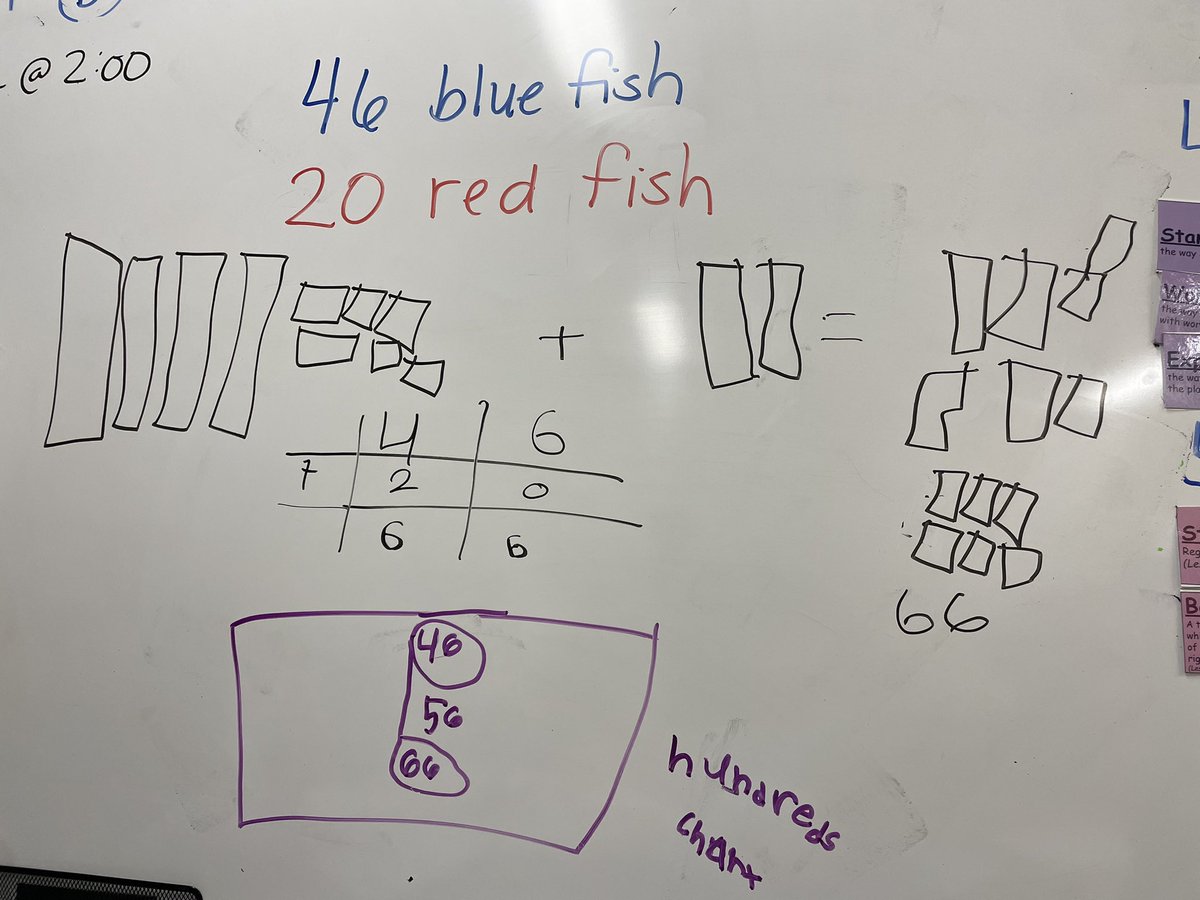 @ 2:00
46 blue fish
20 red fish
+ =
4 6
+ 2 0
6 6
66
46
56
66
hundreds
chart
Star
the way
Wo
the way
with wor
Exp
the wa
the pla
S
Reg
(Le
B
A t
wh
of
rig
(Le